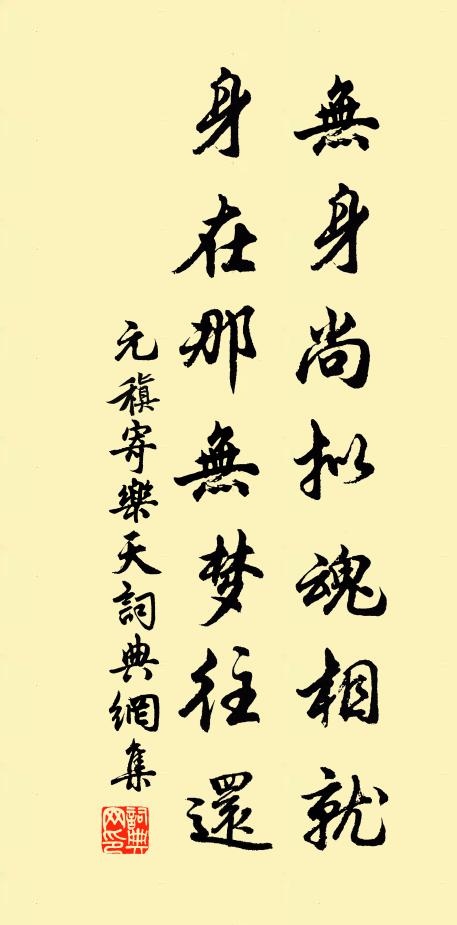 無身尚拟魂相就
身在那無梦往還
元稹寄樂天詞典網集
詞典网印